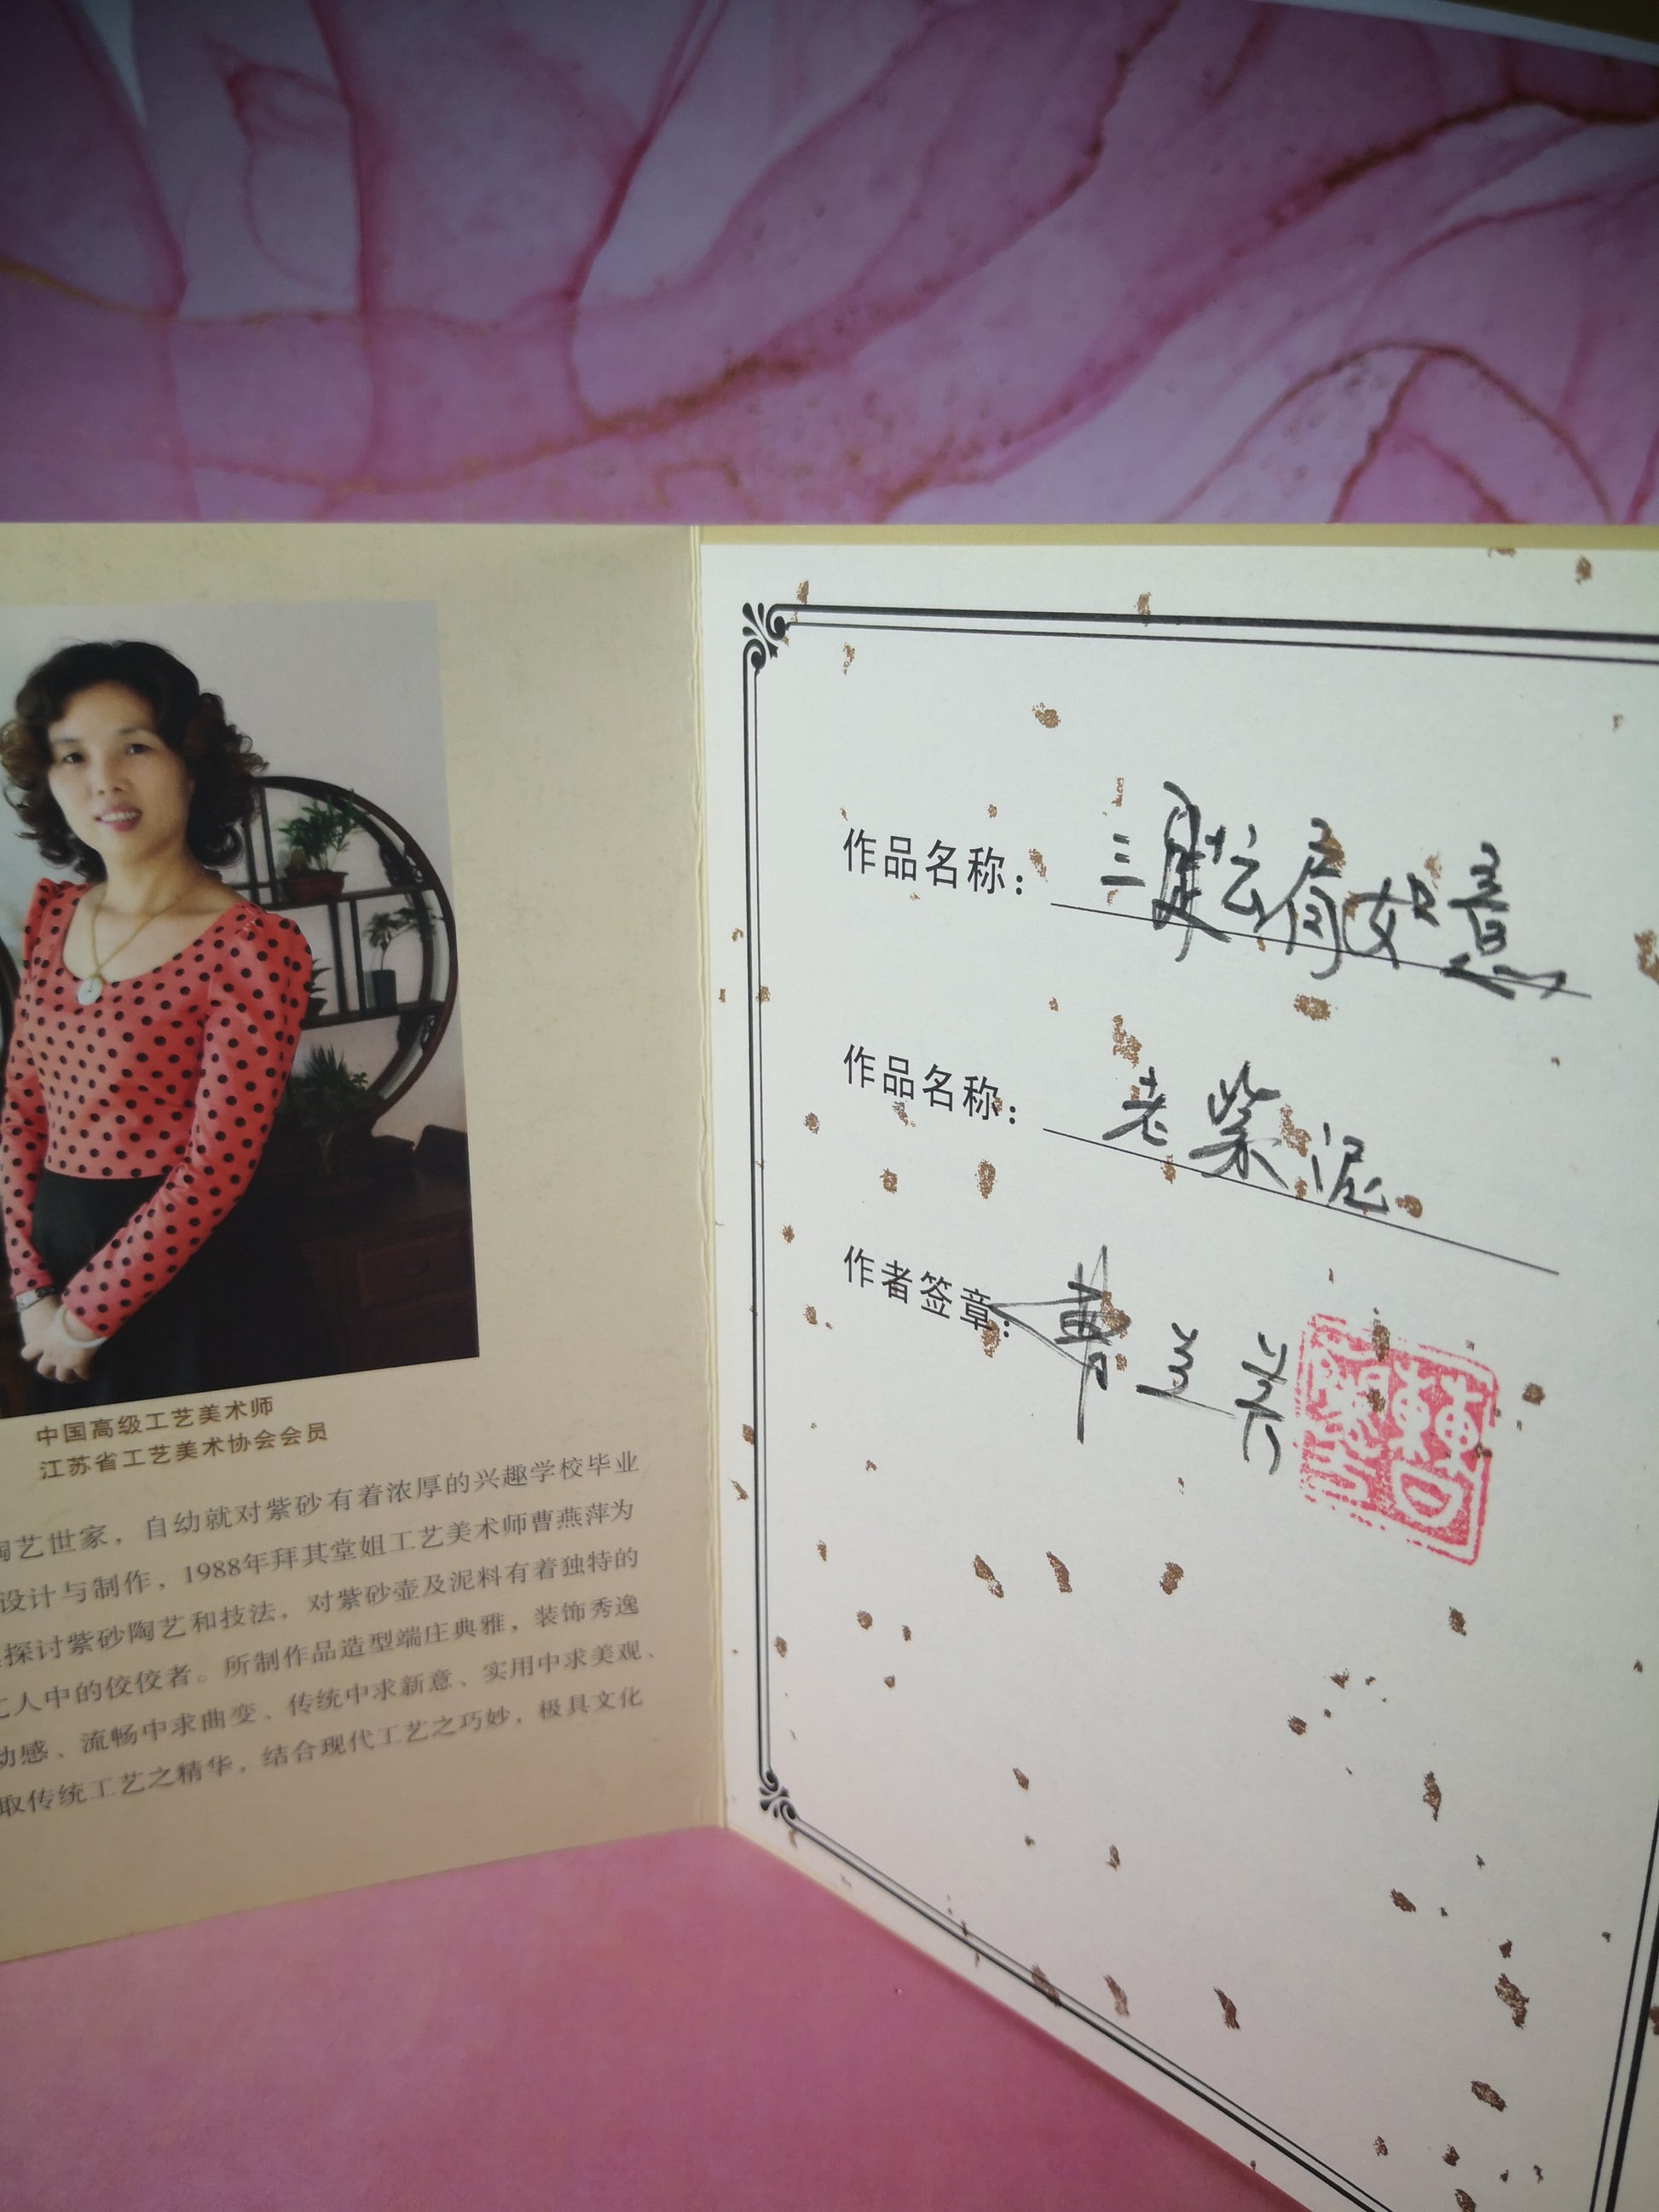 中国高级工艺美术师
江苏省工艺美术协会会员
陶艺世家，自幼就对紫砂有着浓厚的兴趣学校毕业
设计与制作，1988年拜其堂姐工艺美术师曹燕萍为
探讨紫砂陶艺和技法，对紫砂壶及泥料有着独特的
人中的佼佼者。所制作品造型端庄典雅，装饰秀逸
动感、流畅中求曲变、传统中求新意、实用中求美观、
取传统工艺之精华，结合现代工艺之巧妙，极具文化
作品名称：三足云肩如意
作品名称：老紫泥
作者签章：曹